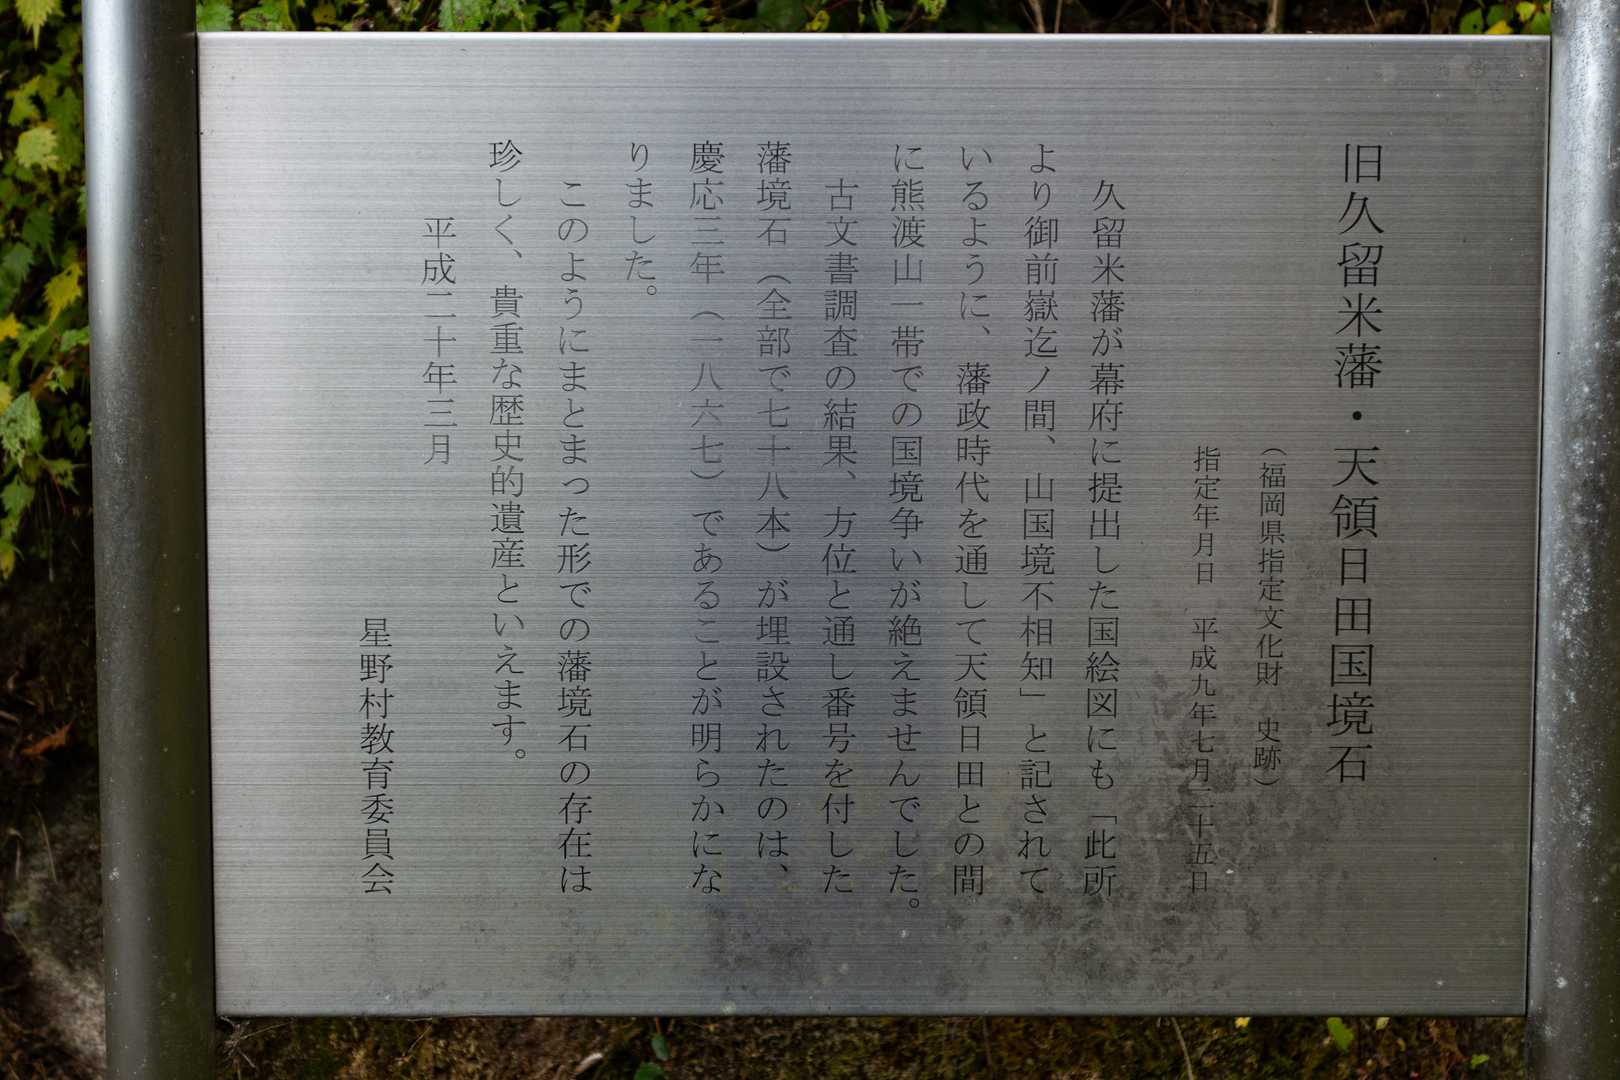 旧久留米藩・天領日田国境石
（福岡県指定文化財　史跡）
指定年月日　平成九年七月二十五日
久留米藩が幕府に提出した国絵図にも「此所
より御前嶽迄ノ間、山国境不相知」と記されて
いるように、藩政時代を通して天領日田との間
に熊渡山一帯での国境争いが絶えませんでした。
古文書調査の結果、方位と通し番号を付した
藩境石（全部で七十八本）が埋設されたのは、
慶応三年（一八六七）であることが明らかにな
りました。
このようにまとまった形での藩境石の存在は
珍しく、貴重な歴史的遺産といえます。
平成二十年三月
星野村教育委員会